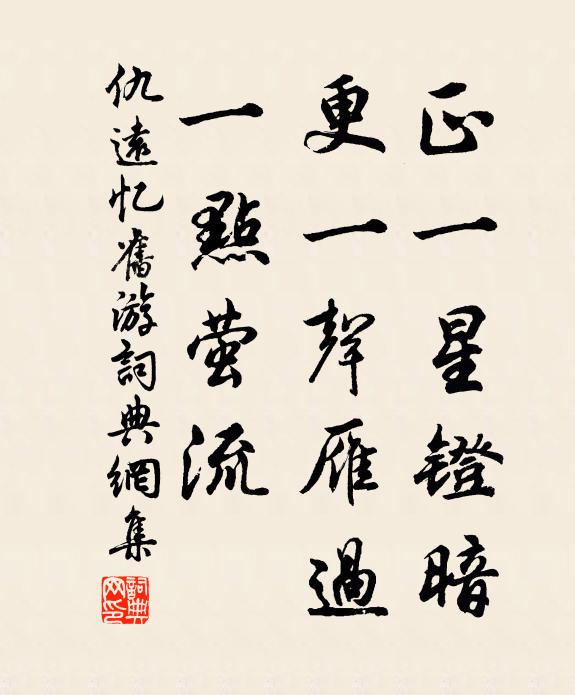 正一星鐙暗
更一聲雁過
一點萤流
仇遠忆舊游詞典網集
詞典網印